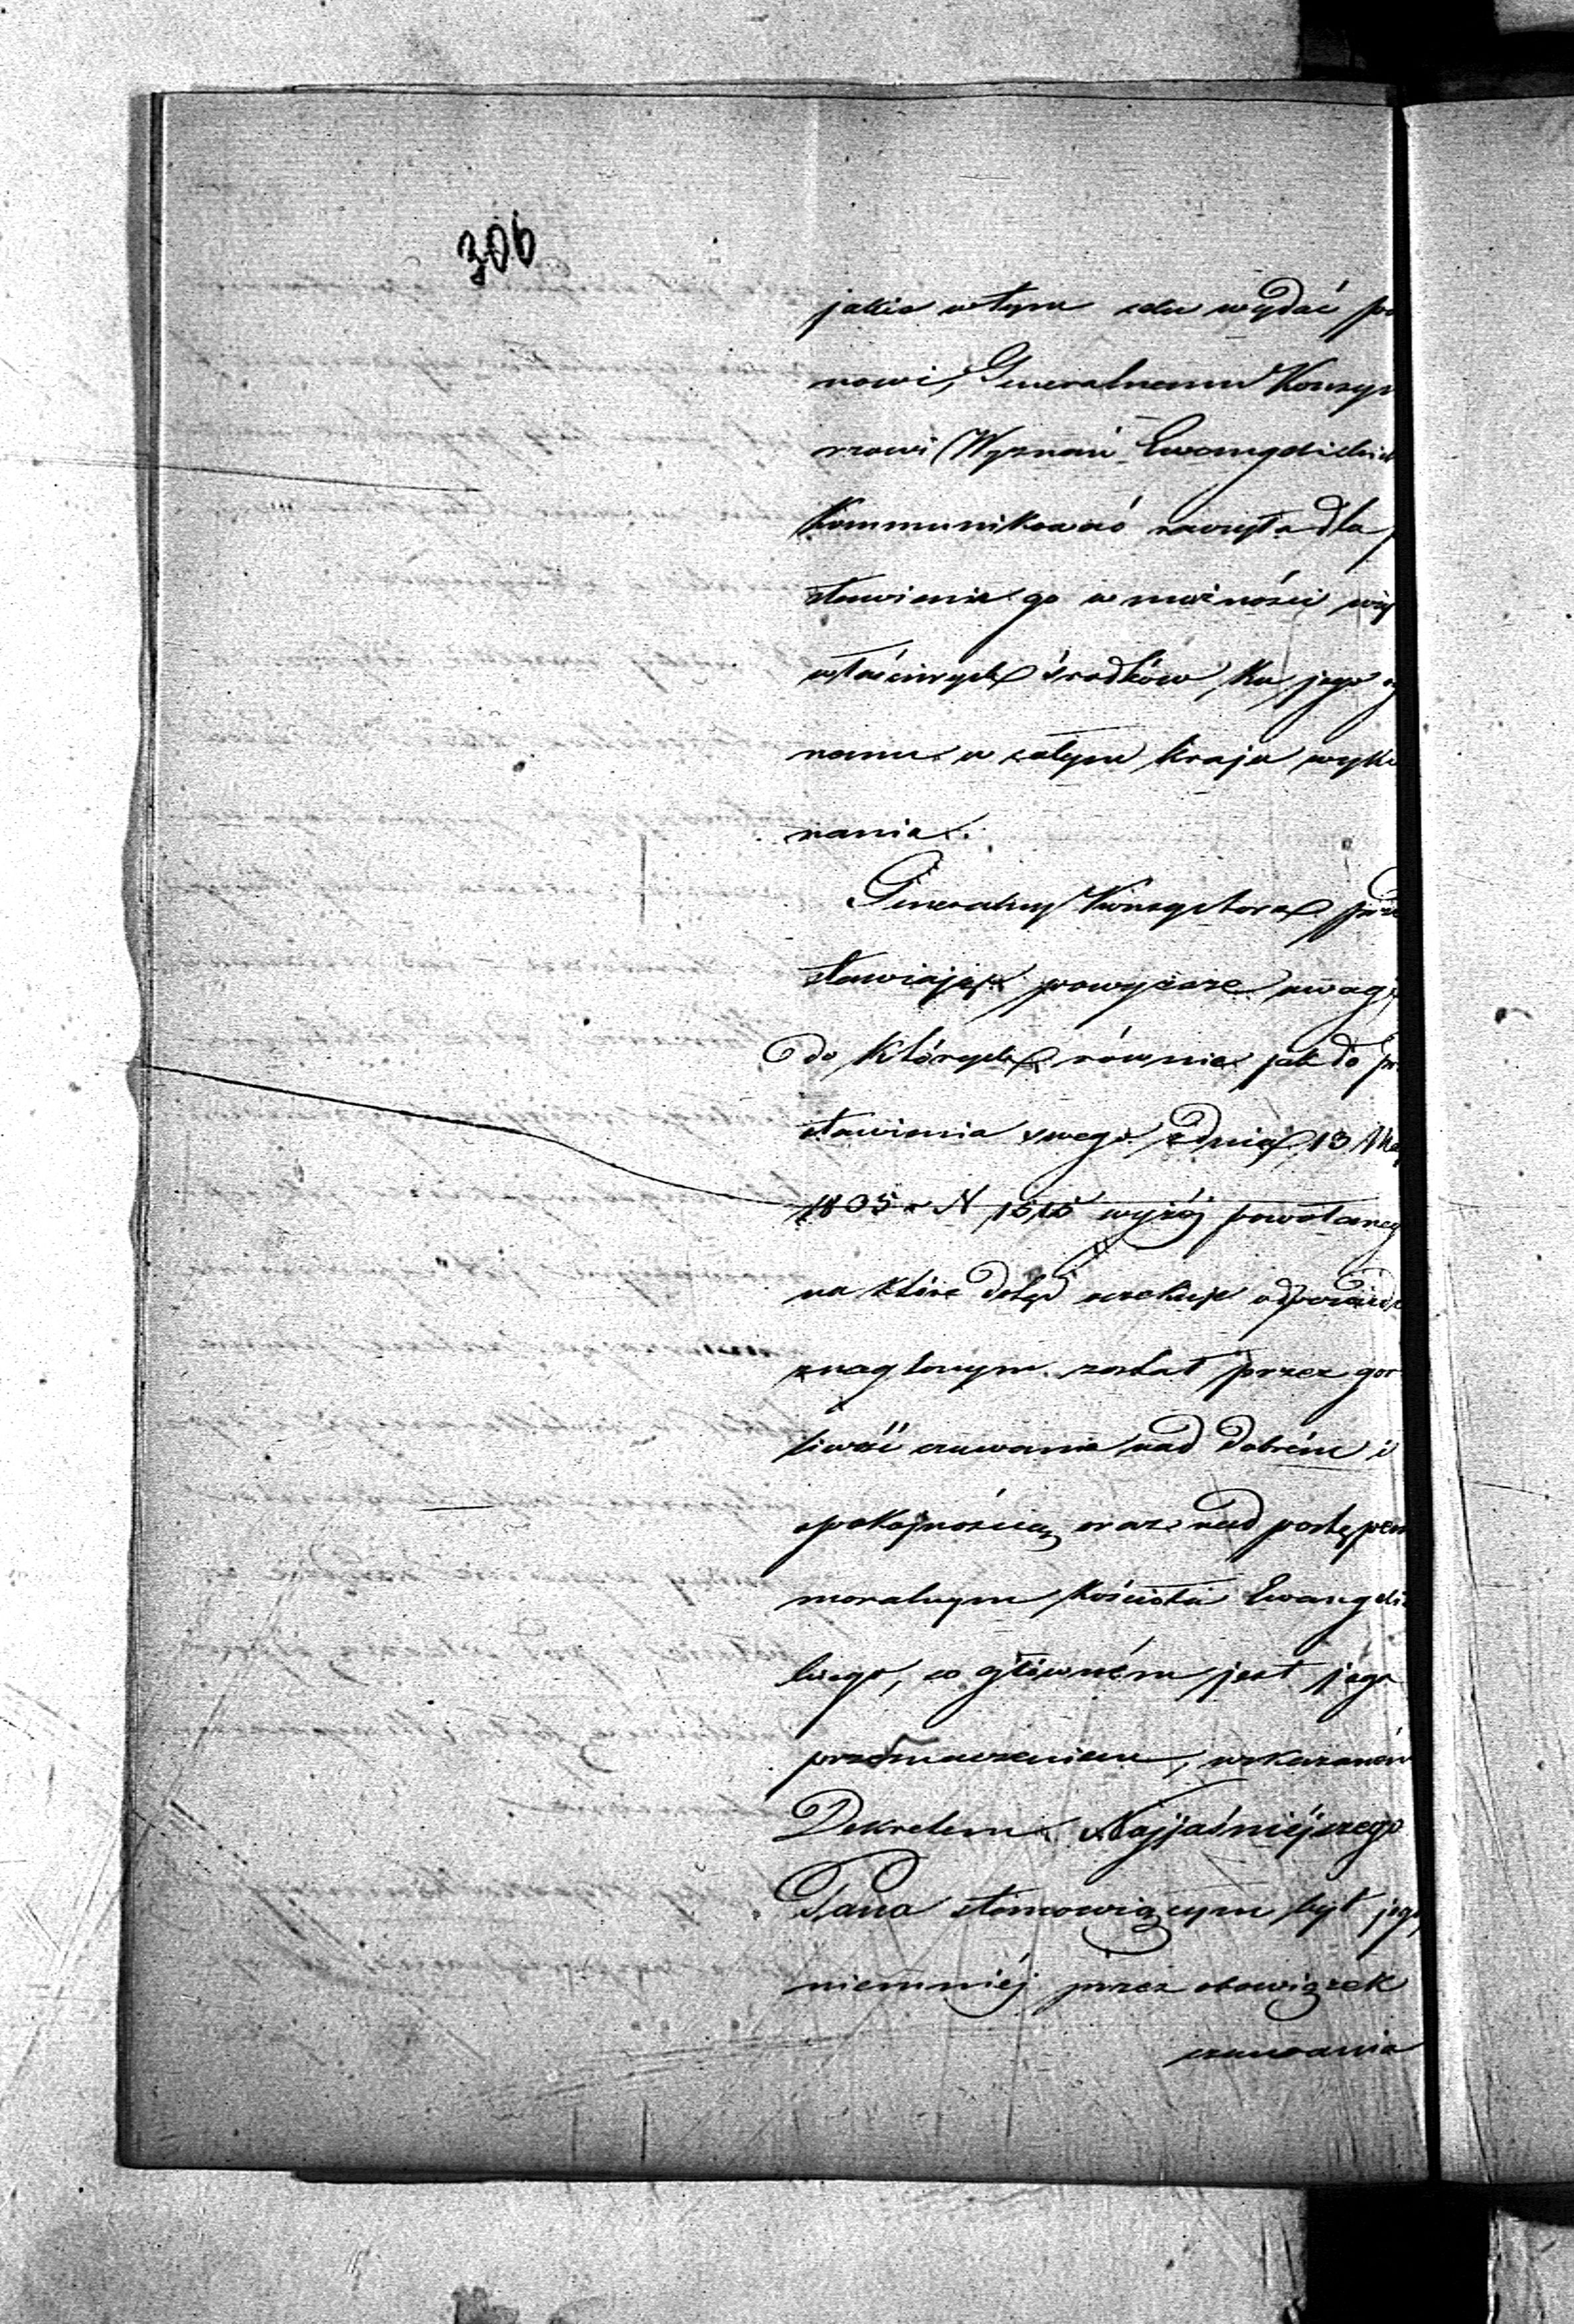 306
jakie w tym celu wydać po
nowi, Generalnemu Konsys
rzowi Wyznań Ewangelickich
kommunikować raczyła dla
stawienia go w możności
właściwych środków, ku jego
nemu w całym kraju wyko
nania.
Generalny Konsystorz prze
stawiając powyższe uwagi
do których równie jak do prz
stawienia swego z dnia 13 Maj
1835 r N 1515 wyżéj powołaneg
na które dotąd oczekuje odpowied
znaglonym został przez gor
liwość czuwania nad dobrém i
spokojnością oraz nad postępem
moralnym Kościoła Ewangelic
kiego, co główném jest jego
przeznaczeniem, wskazaném
Dekretem Najjaśniejszego
Pana stanowiącym byt jego,
niemniéj przez obowiązek
czuwania